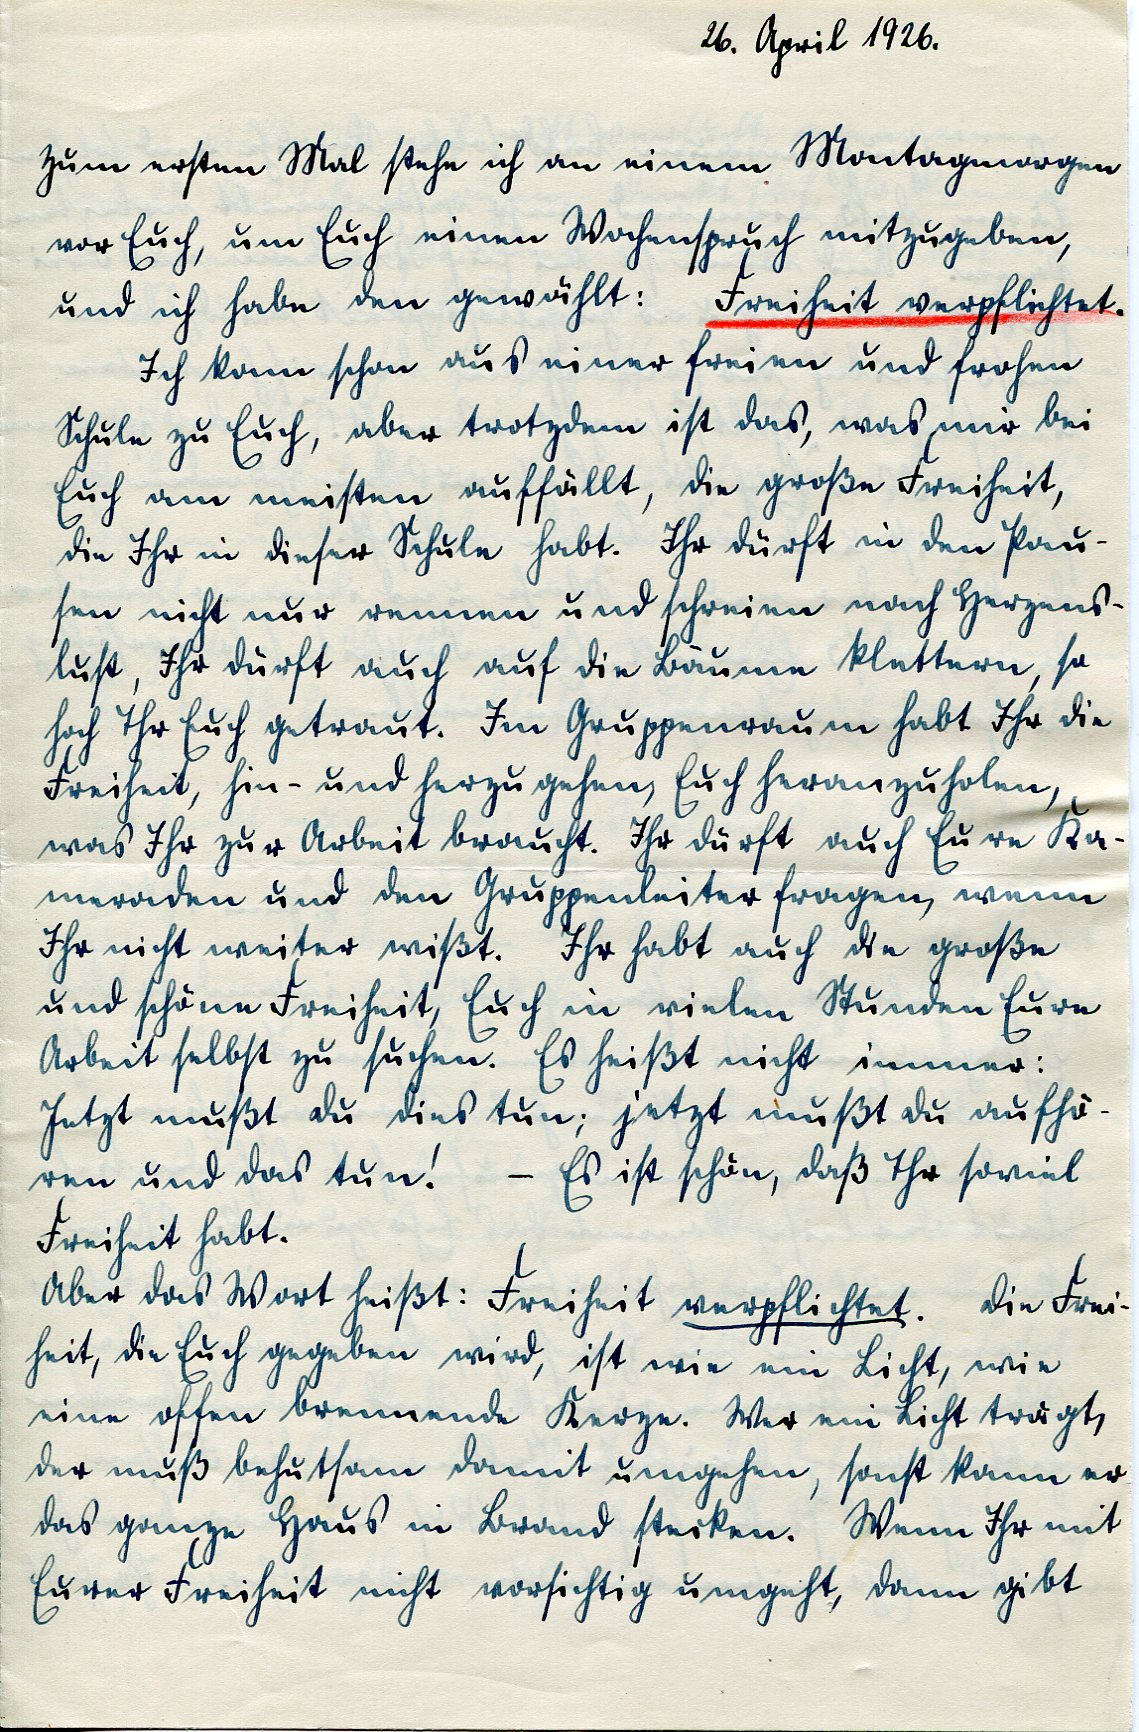 26. April 1926.
Zum ersten Mal stehe ich an einem Montagmorgen
vor Euch, um Euch einen Wochenspruch mitzugeben,
und ich habe den gewählt: Freiheit verpflichtet.
Ich kam schon aus einer freien und frohen
Schule zu Euch, aber trotzdem ist das, was mir bei
Euch am meisten auffällt, die große Freiheit,
die Ihr in dieser Schule habt. Ihr dürft in den Pau-
sen nicht nur rennen und schreien nach Herzens-
lust, Ihr dürft auch auf die Bäume klettern, so
hoch Ihr Euch getraut. Im Gruppenraum habt Ihr die
Freiheit, hin- und herzugehen, Euch heranzuholen,
was Ihr zur Arbeit braucht. Ihr dürft auch Eure Ka-
meraden und den Gruppenleiter fragen, wenn
Ihr nicht weiter wißt. Ihr habt auch die große
und schöne Freiheit, Euch in vielen Stunden Eure
Arbeit selbst zu suchen. Es heißt nicht immer:
Jetzt mußt du dies tun; jetzt mußt du aufhö-
ren und das tun! – Es ist schön, daß Ihr soviel
Freiheit habt.
Aber das Wort heißt: Freiheit verpflichtet. Die Frei-
heit, die Euch gegeben wird, ist wie ein Licht, wie
eine offen brennende Kerze. Wer ein Licht trägt,
der muß behutsam damit umgehen, sonst kann er
das ganze Haus in Brand stecken. Wenn Ihr mit
Eurer Freiheit nicht vorsichtig umgeht, dann gibt